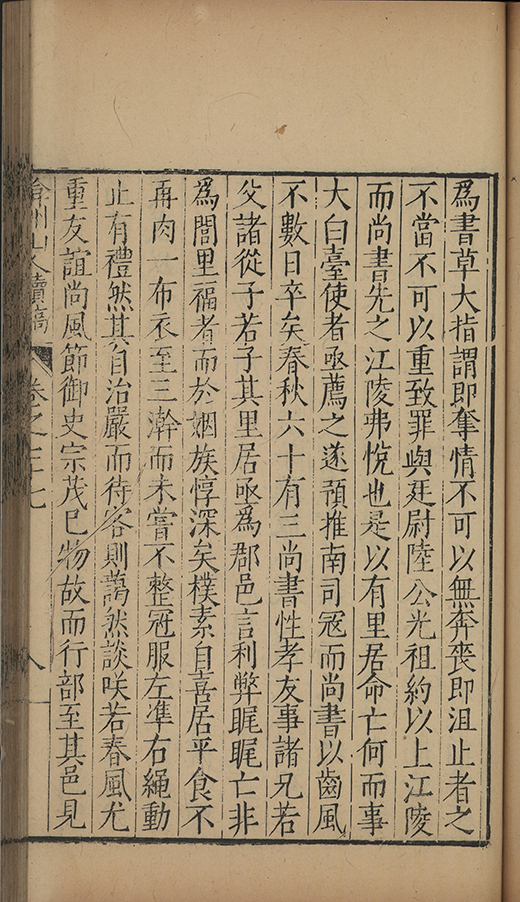 為書草大指謂即奪情不可以無奔喪即沮止者之
不當不可以重致罪與廷尉陸公光祖約以上江陵
而尚書先之江陵弗悅也是以有里居命亡何而事
大白臺使者亟薦之遂預推南司寇而尚書以齒風
不數日卒矣春秋六十有三尚書性孝友事諸兄若
父諸從子若子其里居亟為郡邑言利弊睍睍亡非
為閭里福者而於姻族惇深矣樸素自喜居平食不
再肉一布衣至三澣而未嘗不整冠服左凖右繩動
止有禮然其自治嚴而待客則藹然談咲若春風尤
重友誼尚風節御史宗茂巳物故而行部至其邑見
弇州山人續稿 卷之 七 八